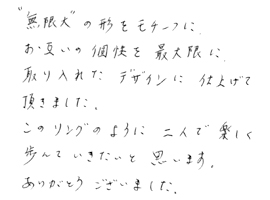 "無限大"の形をモチーフに、
お互いの個性を最大限に
取り入れたデザインに仕上げて
頂きました。
このリングのように二人で楽しく
歩んでいきたいと思います。
ありがとうございました。